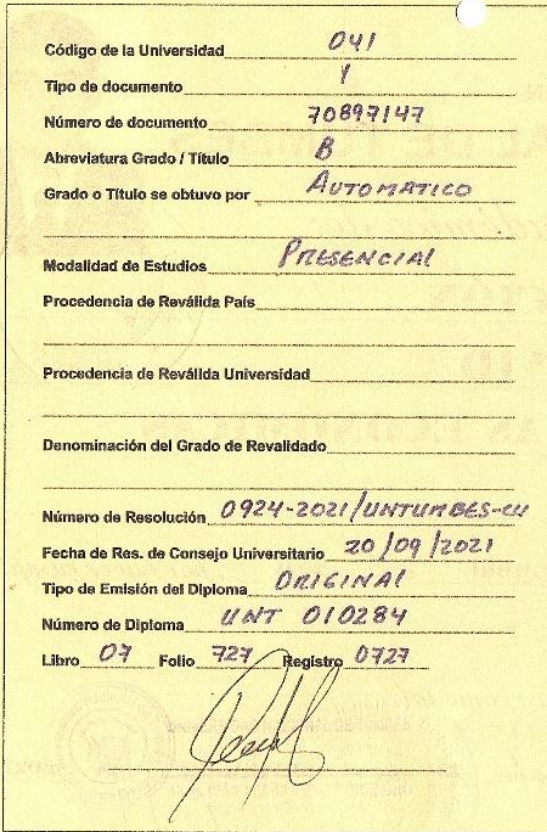 Código de la Universidad 041
Tipo de documento 1
Número de documento 70897147
Abreviatura Grado / Título B
Grado o Título se obtuvo por AUTOMATICO
Modalidad de Estudios PRESENCIAL
Procedencia de Reválida País
Procedencia de Reválida Universidad
Denominación del Grado de Revalidado
Número de Resolución 0924-2021/UNTUMBES-CU
Fecha de Res. de Consejo Universitario 20/09/2021
Tipo de Emisión del Diploma ORIGINAL
Número de Diploma UNT 010284
Libro 07 Folio 727 Registro 0727